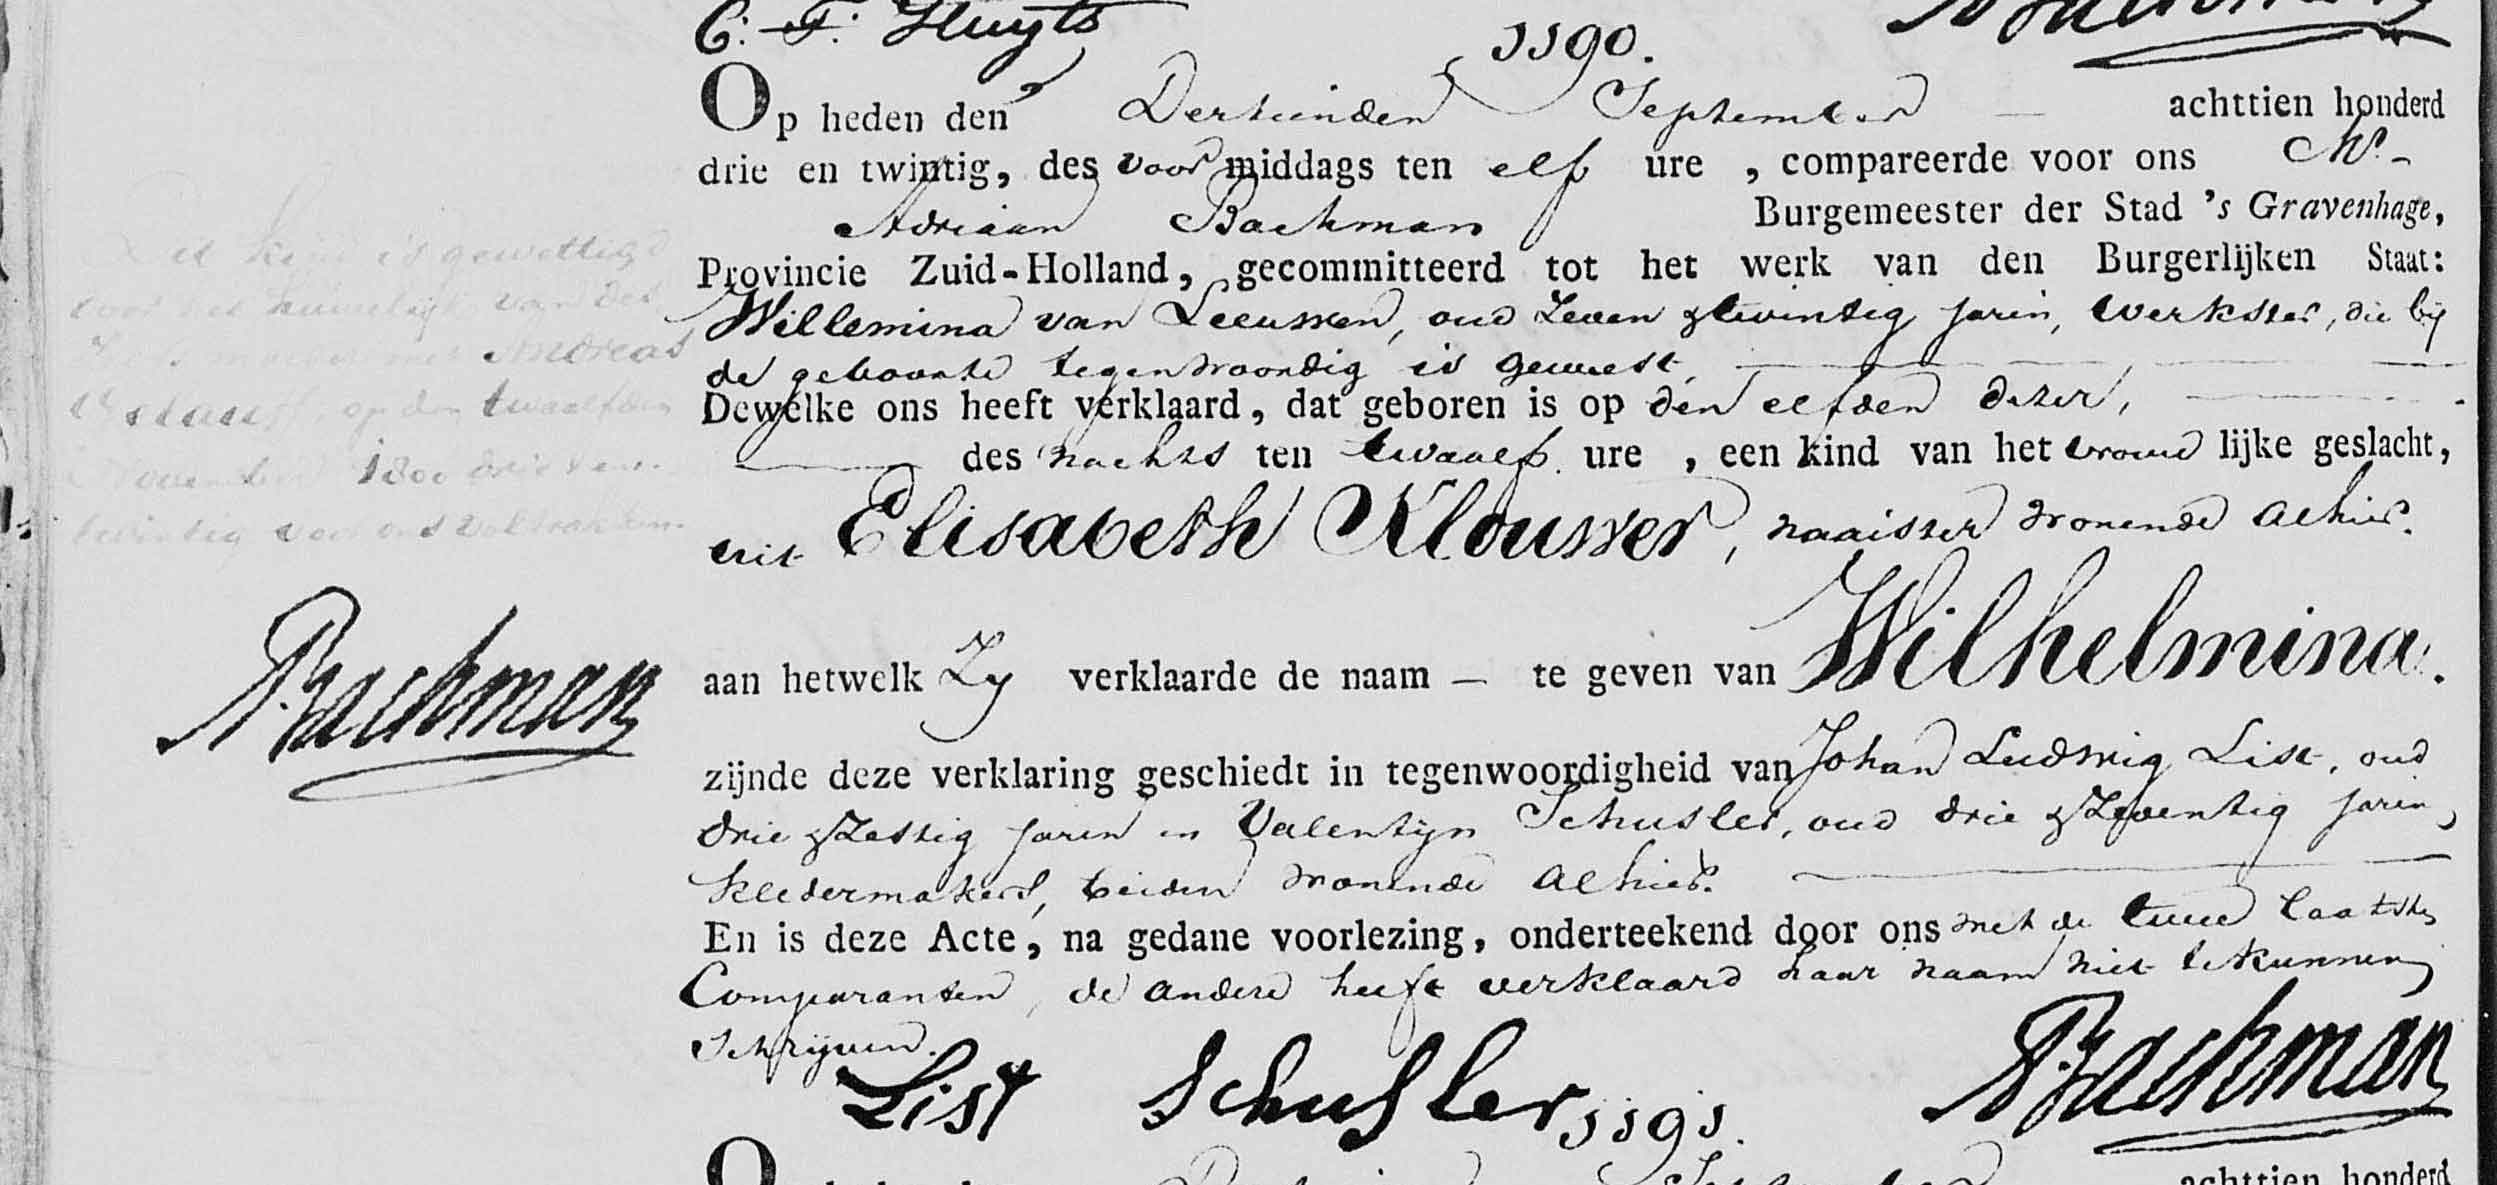 C: F: Kluyts
1190.
Op heden den Dertienden September achttien honderd
drie en twintig, des voor middags ten elf ure , compareerde voor ons Mr.
Adriaan Bachman Burgemeester der Stad 's Gravenhage,
Provincie Zuid-Holland, gecommitteerd tot het werk van den Burgerlijken Staat:
Willemina van Leeuwen, oud Zeven & twintig jaren, werkster, die bij
de geboorte tegenwoordig is geweest,
Dewelke ons heeft verklaard, dat geboren is op den elfden dezer,
des nachts ten twaalf ure , een kind van het vrouw lijke geslacht,
uit Elisabeth Klouwer, naaister wonende alhier.
aan hetwelk Zy verklaarde de naam — te geven van Wilhelmina.
zijnde deze verklaring geschiedt in tegenwoordigheid van Johan Ludwig List, oud
drie & Zestig jaren en Valentyn Schusler, oud drie & Zeventig jaren,
kledermakers, beiden wonende alhier.
En is deze Acte, na gedane voorlezing, onderteekend door ons met de twee laatste
Comparanten, de andere heeft verklaard haar naam niet te kunnen
schrijven.
List Schusler ABachman
1191.
achttien honderd
Dit kind is gewettigd
door het huwelijk van des
moeder met Andreas
op den twaalfden
November 1800 drie en
twintig voor ons voltrokken.
ABachman